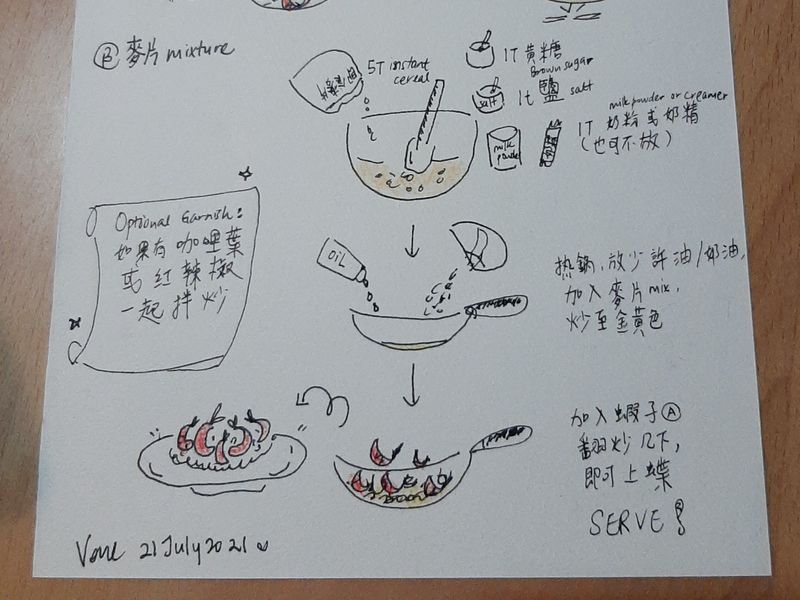 Ⓑ 麥片 mixture
5T instant
cereal
1T 黃糖
Brown sugar
salt
1t 鹽 salt
milk
powder
milk powder or creamer
1T 奶粉或奶精
(也可不放)
Optional Garnish:
如果有咖哩葉
或紅辣椒
一起拌炒
OIL
热鍋,放少許油/奶油,
加入麥片 mix,
炒至金黃色
加入蝦子Ⓐ
翻炒几下,
即可上蝶
SERVE!
21 July 2021